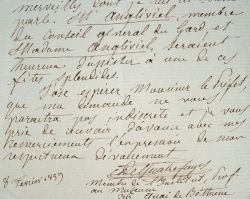 merveilles dont je
parle. M Angliviel, membre
du Conseil général du Gard, et
Madame Angliviel, seraient
heureux d'assister à une de ces
fêtes splendides.
J'ose espérer Monsieur le Préfet,
que ma demande ne vous
paraitra pas indiscrète et vous
prie de recevoir d'avance avec mes
remerciements l'expression de mon
respectueux dévouement
de Quatrefages
8 Février 1859
Membre de l'Institut, Prof
au Muséum
36 Quai de Béthune